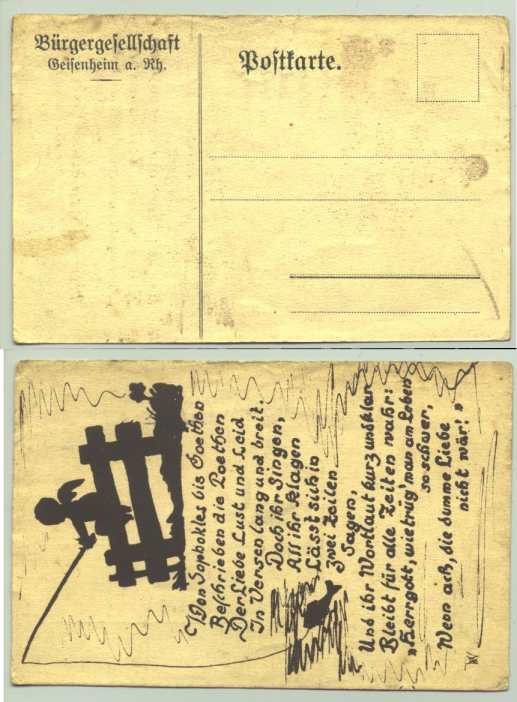 Bürgergesellschaft
Geisenheim a. Rh.
Postkarte.
Von Sophokles bis Goethen
Beschrieben die Poethen
Der Liebe Lust und Leid
In Versen lang und breit.
Doch ihr Singen,
All ihr Klagen
Lässt sich in
zwei Zeilen
sagen,
Und ihr Wortlaut kurz und klar
Bleibt für alle Zeiten wahr:
„Herrgott, wie trüg' man am Leben
so schwer,
Wenn ach, die dumme Liebe
nicht wär!"